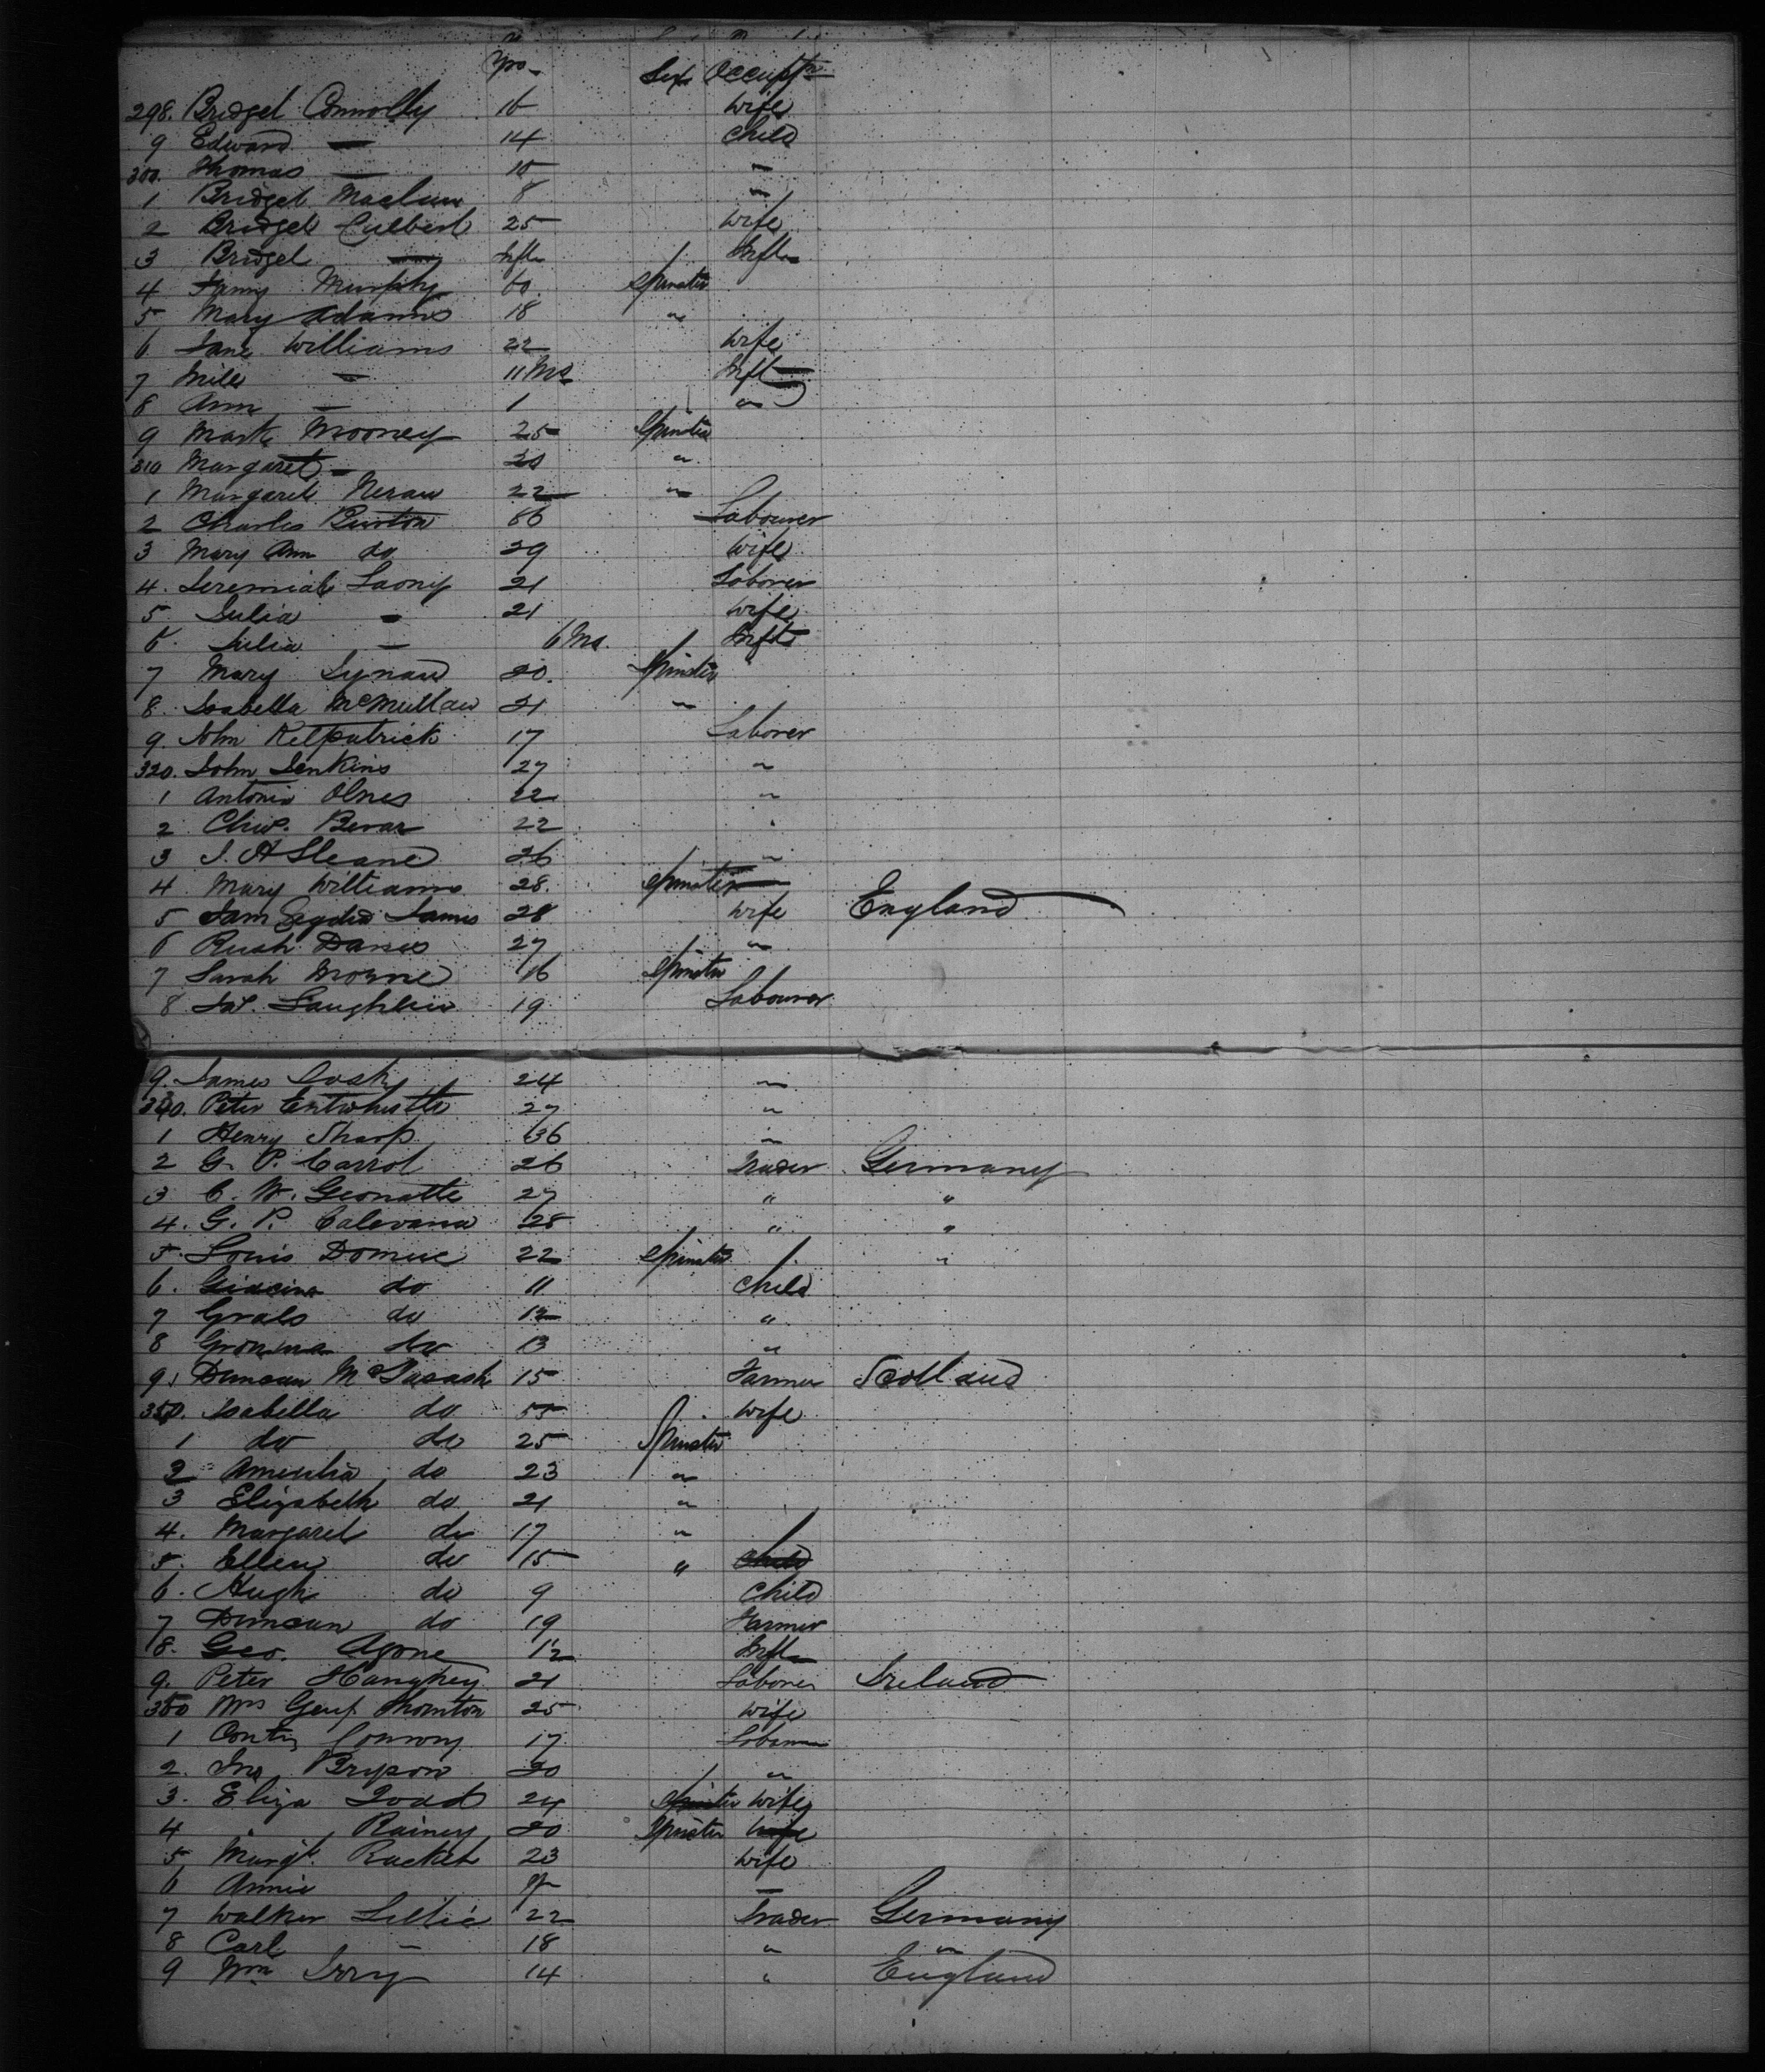 Yrs Sex Occuptn
298. Bridget Connolly 16 Wife
9 Edward — 14 Child
300. Thomas — 10 "
1 Bridget 8 "
2 Bridget Culbert 25 Wife
3 Bridget — Inft Inft
4 Fanny Murphy 60 Spinster
5 Mary Adams 18 "
6 Jane Williams 22 Wife
7 — 11 Ms Inft
8 Ann — 1 "
9 Mark Mooney 25 Spinster
310 Margaret — 20 "
1 Margaret 22 "
2 Charles Burton 36 Labourer
3 Mary Ann do 29 Wife
4. Jeremiah Laony 21 Laborer
5 Julia — 21 Wife
6. Julia — 6 Ms. Inft
7 Mary Lynard 20. Spinster
8. Isabella McMullan 21 "
9. John Kilpatrick 17 Laborer
320. John Jenkins 27 "
1 Antonio Olnes 22 "
2 Chis. Bevar 22 "
3 J. A Sleane 26 "
4 Mary Williams 28. Spinster
5 James 28 Wife England
6 Ruah Danes 27 "
7 Sarah Morne 16 Spinster
8 Jas. Laughlin 19 Labourer
9. James 24 "
340. Peter Entwhistle 27 "
1 Henry Sharp 36 "
2 G. P. Carrol 26 Trader Germany
3 C. W. Geonatte 27 " "
4. G. P. Calevana 28 " "
5. Louis Domuc 22 Spinster "
6. Giacina do 11 Child
7 Grals do 12 "
8 Gronma do 13 "
9. Duncan McTavash 15 Farmer Scotland
350. Isabella do 55 Wife
1 do do 25 Spinster
2 Amelia do 23 "
3 Elizabeth do 21 "
4. Margaret do 17 "
5. Ellen do 15 " Child
6. Hugh do 9 Child
7 Duncan do 19 Farmer
8. Geo. Agone 1/2 Inft
9. Peter Haughey 21 Laborer Ireland
360 Mrs Thornton 25 Wife
1 Conway 17 Laborer
2. Jno Bryson 20 "
3. Eliza Load 24 Spinster Wife
4 " Rainey 20 Spinster Wife
5 Margt. Racket 23 Wife
6 Annie —
7 Walker Lillie 22 Trader Germany
8 Carl — 18 " "
9 Wm Irry 14 " England